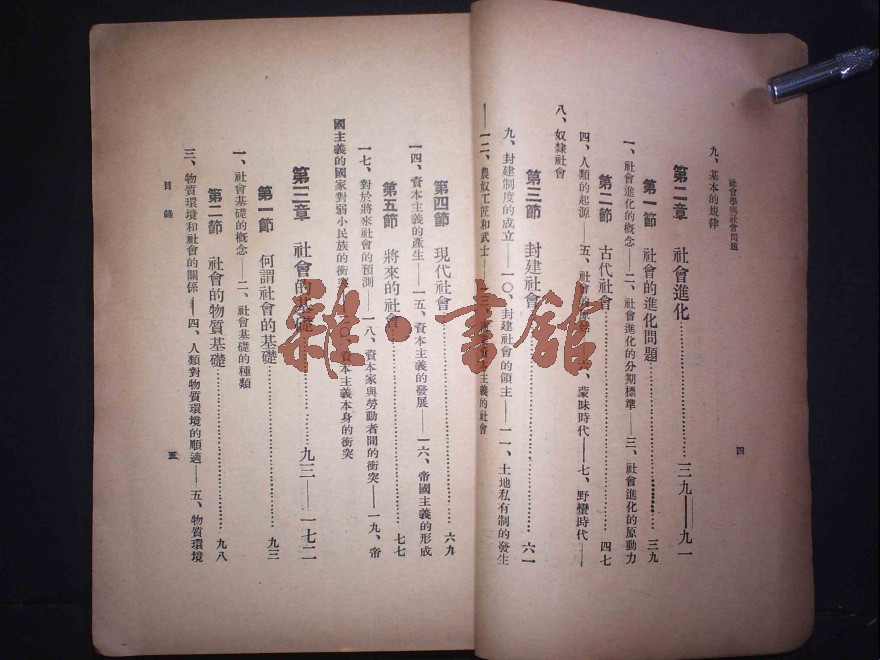 社會學與社會問題
四
九、基本的規律
第二章 社會進化…………三九——九一
第一節 社會的進化問題…………三九
一、社會進化的概念——二、社會進化的分期標準——三、社會進化的原動力
第二節 古代社會…………四七
四、人類的起源——五、社會的——六、蒙昧時代——七、野蠻時代——
八、奴隸社會
第三節 封建社會…………六一
九、封建制度的成立——一〇、封建社會的領主——一一、土地私有制的發生
——一二、農奴工匠和武士——一三、資本主義的社會
第四節 現代社會…………六九
一四、資本主義的產生——一五、資本主義的發展——一六、帝國主義的形成
第五節 將來的社會…………七七
一七、對於將來社會的預測——一八、資本家與勞動者間的衝突——一九、帝
國主義的國家對弱小民族的衝突——二〇、資本主義本身的衝突
第三章 社會的基礎…………九三——一七二
第一節 何謂社會的基礎…………九三
一、社會基礎的概念——二、社會基礎的種類
第二節 社會的物質基礎…………九八
三、物質環境和社會的關係——四、人類對物質環境的順適——五、物質環境
目錄
五
雜·書館